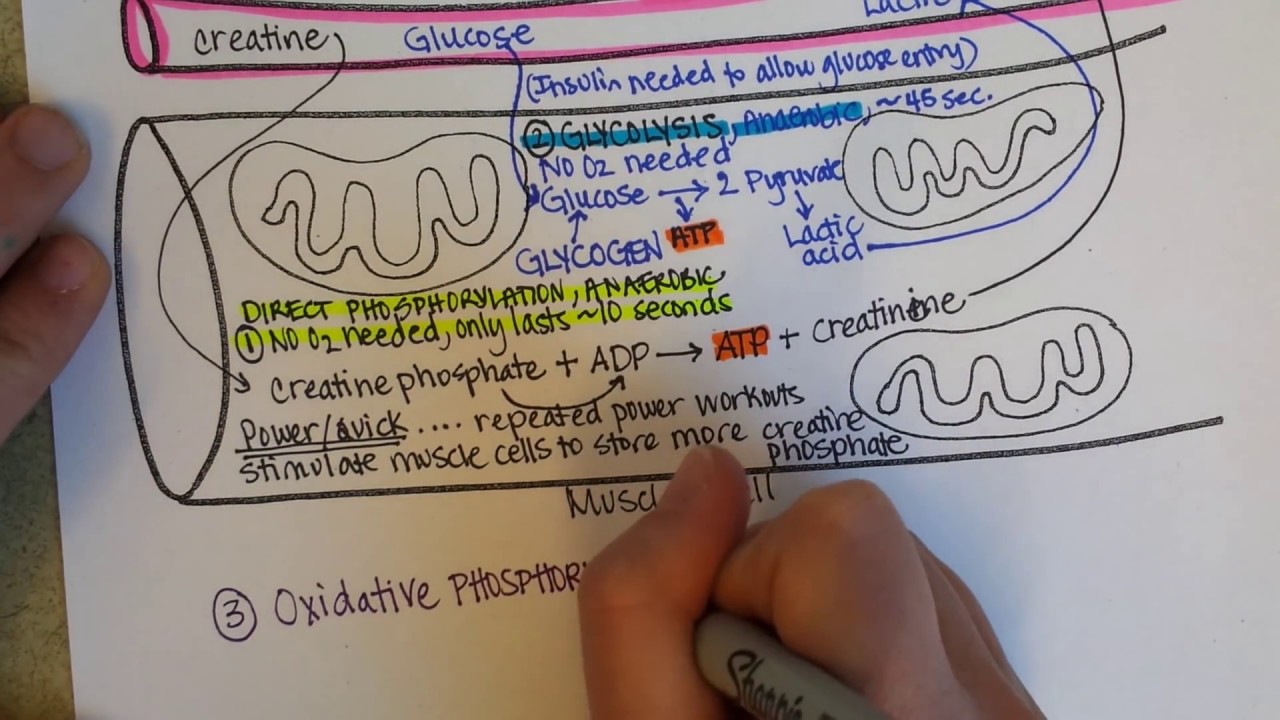 creatine
Glucose
(Insulin needed to allow glucose entry)
② GLYCOLYSIS, Anaerobic, ~45 sec.
NO O2 needed
Glucose → 2 Pyruvate
GLYCOGEN
ATP
Lactic
acid
DIRECT PHOSPHORYLATION, ANAEROBIC
① NO O2 needed, only lasts ~10 seconds
creatine phosphate + ADP → ATP + creatinine
Power/Quick .... repeated power workouts
stimulate muscle cells to store more creatine
phosphate
③ Oxidative PHOSPHOR
Sharpie